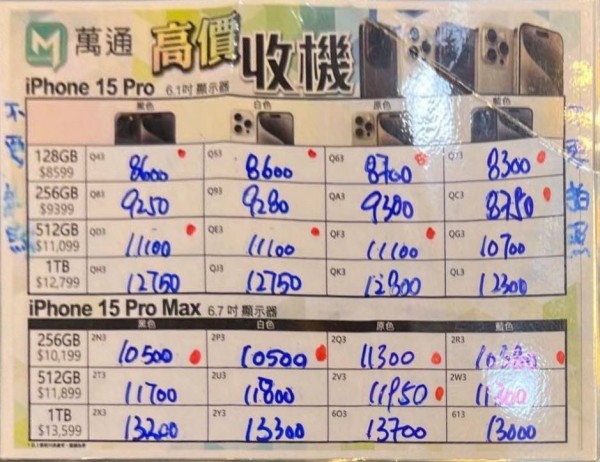 M 萬通 高價收機
iPhone 15 Pro 6.1吋 顯示器
黑色 白色 原色 藍色
128GB Q43 8600 Q53 8600 Q63 8700 Q73 8300
$8599
256GB Q83 9250 Q93 9280 QA3 9300 QC3 8750
$9399
512GB QD3 11100 QE3 11100 QF3 11100 QG3 10700
$11,099
1TB QH3 12750 QJ3 12750 QK3 12800 QL3 12300
$12,799
iPhone 15 Pro Max 6.7吋 顯示器
黑色 白色 原色 藍色
256GB 2N3 10500 2P3 10500 2Q3 11300 2R3
$10,199
512GB 2T3 11700 2U3 11800 2V3 11950 2W3
$11,899
1TB 2X3 13200 2Y3 13300 603 13700 613 13000
$13,599